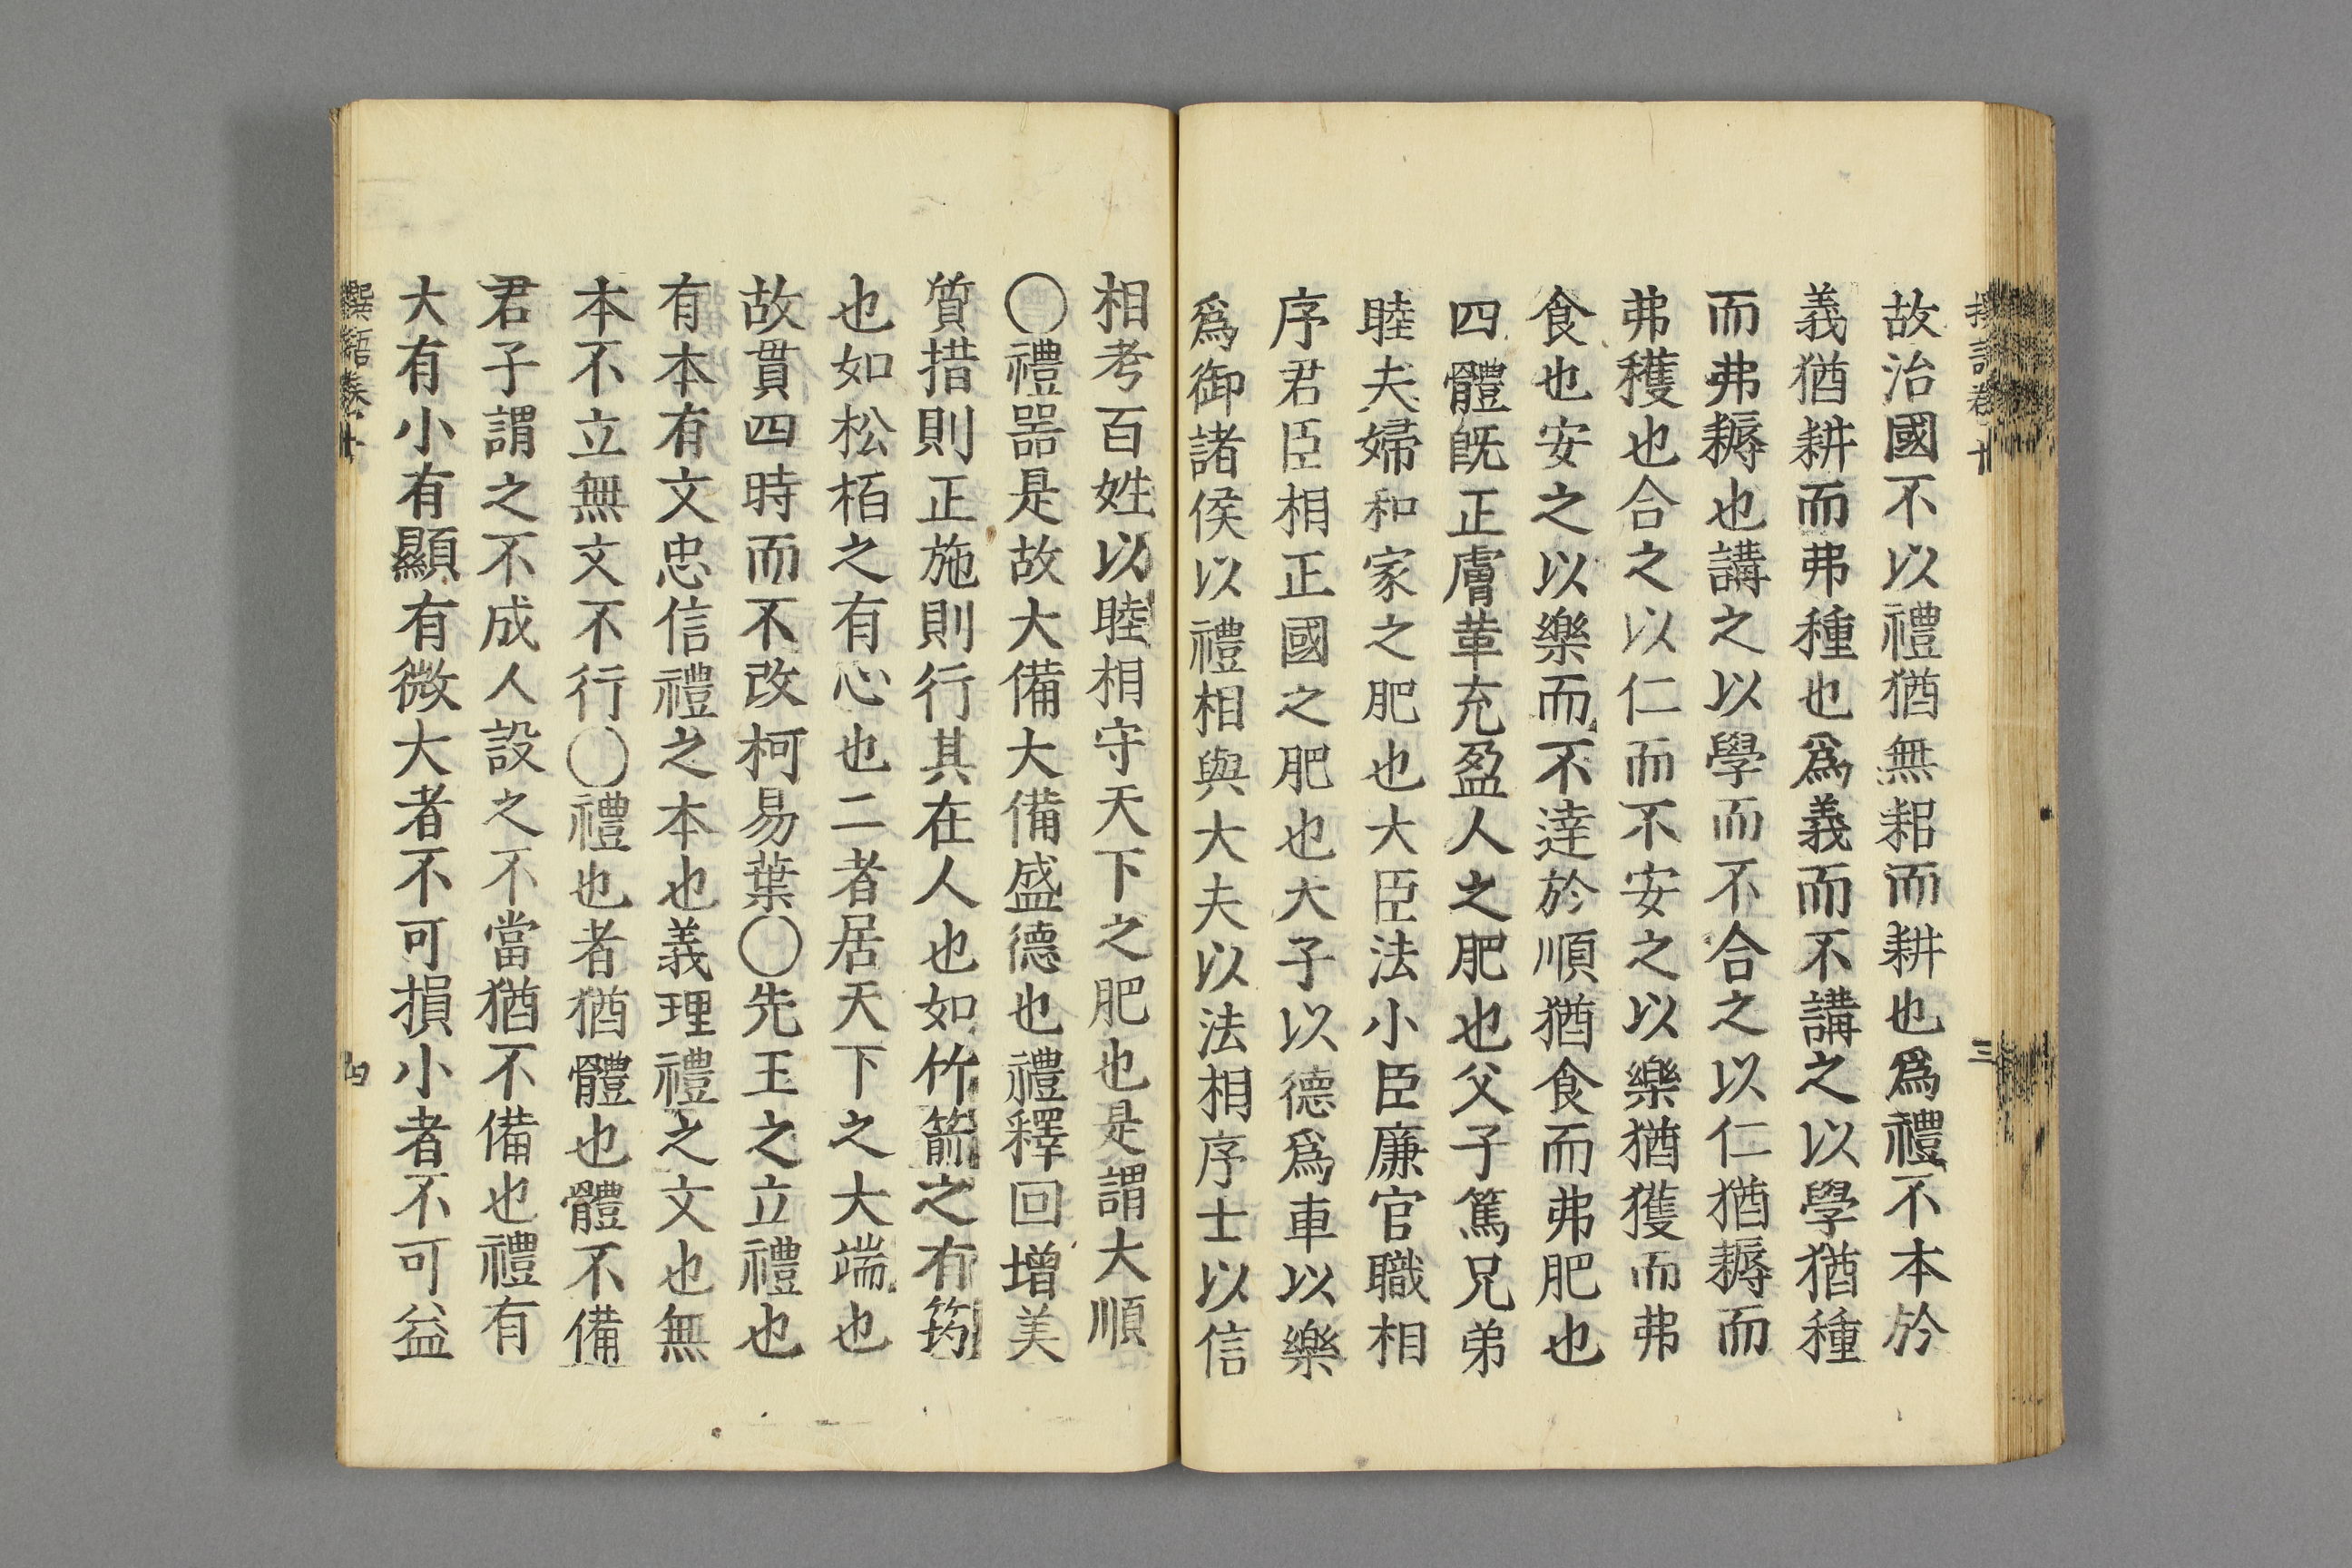 撰語卷十
三
故治國不以禮猶無耜而耕也爲禮不本於
義猶耕而弗種也爲義而不講之以學猶種
而弗耨也講之以學而不合之以仁猶耨而
弗穫也合之以仁而不安之以樂猶獲而弗
食也安之以樂而不達於順猶食而弗肥也
四體既正膚革充盈人之肥也父子篤兄弟
睦夫婦和家之肥也大臣法小臣廉官職相
序君臣相正國之肥也大子以德爲車以樂
爲御諸侯以禮相與大夫以法相序士以信
相考百姓以睦相守天下之肥也是謂大順
〇禮噐是故大備大備盛德也禮釋回增美
質措則正施則行其在人也如竹箭之有筠
也如松栢之有心也二者居天下之大端也
故貫四時而不改柯易葉〇先王之立禮也
有本有文忠信禮之本也義理禮之文也無
本不立無文不行〇禮也者猶體也體不備
君子謂之不成人設之不當猶不備也禮有
大有小有顯有微大者不可損小者不可益
撰語卷十
四